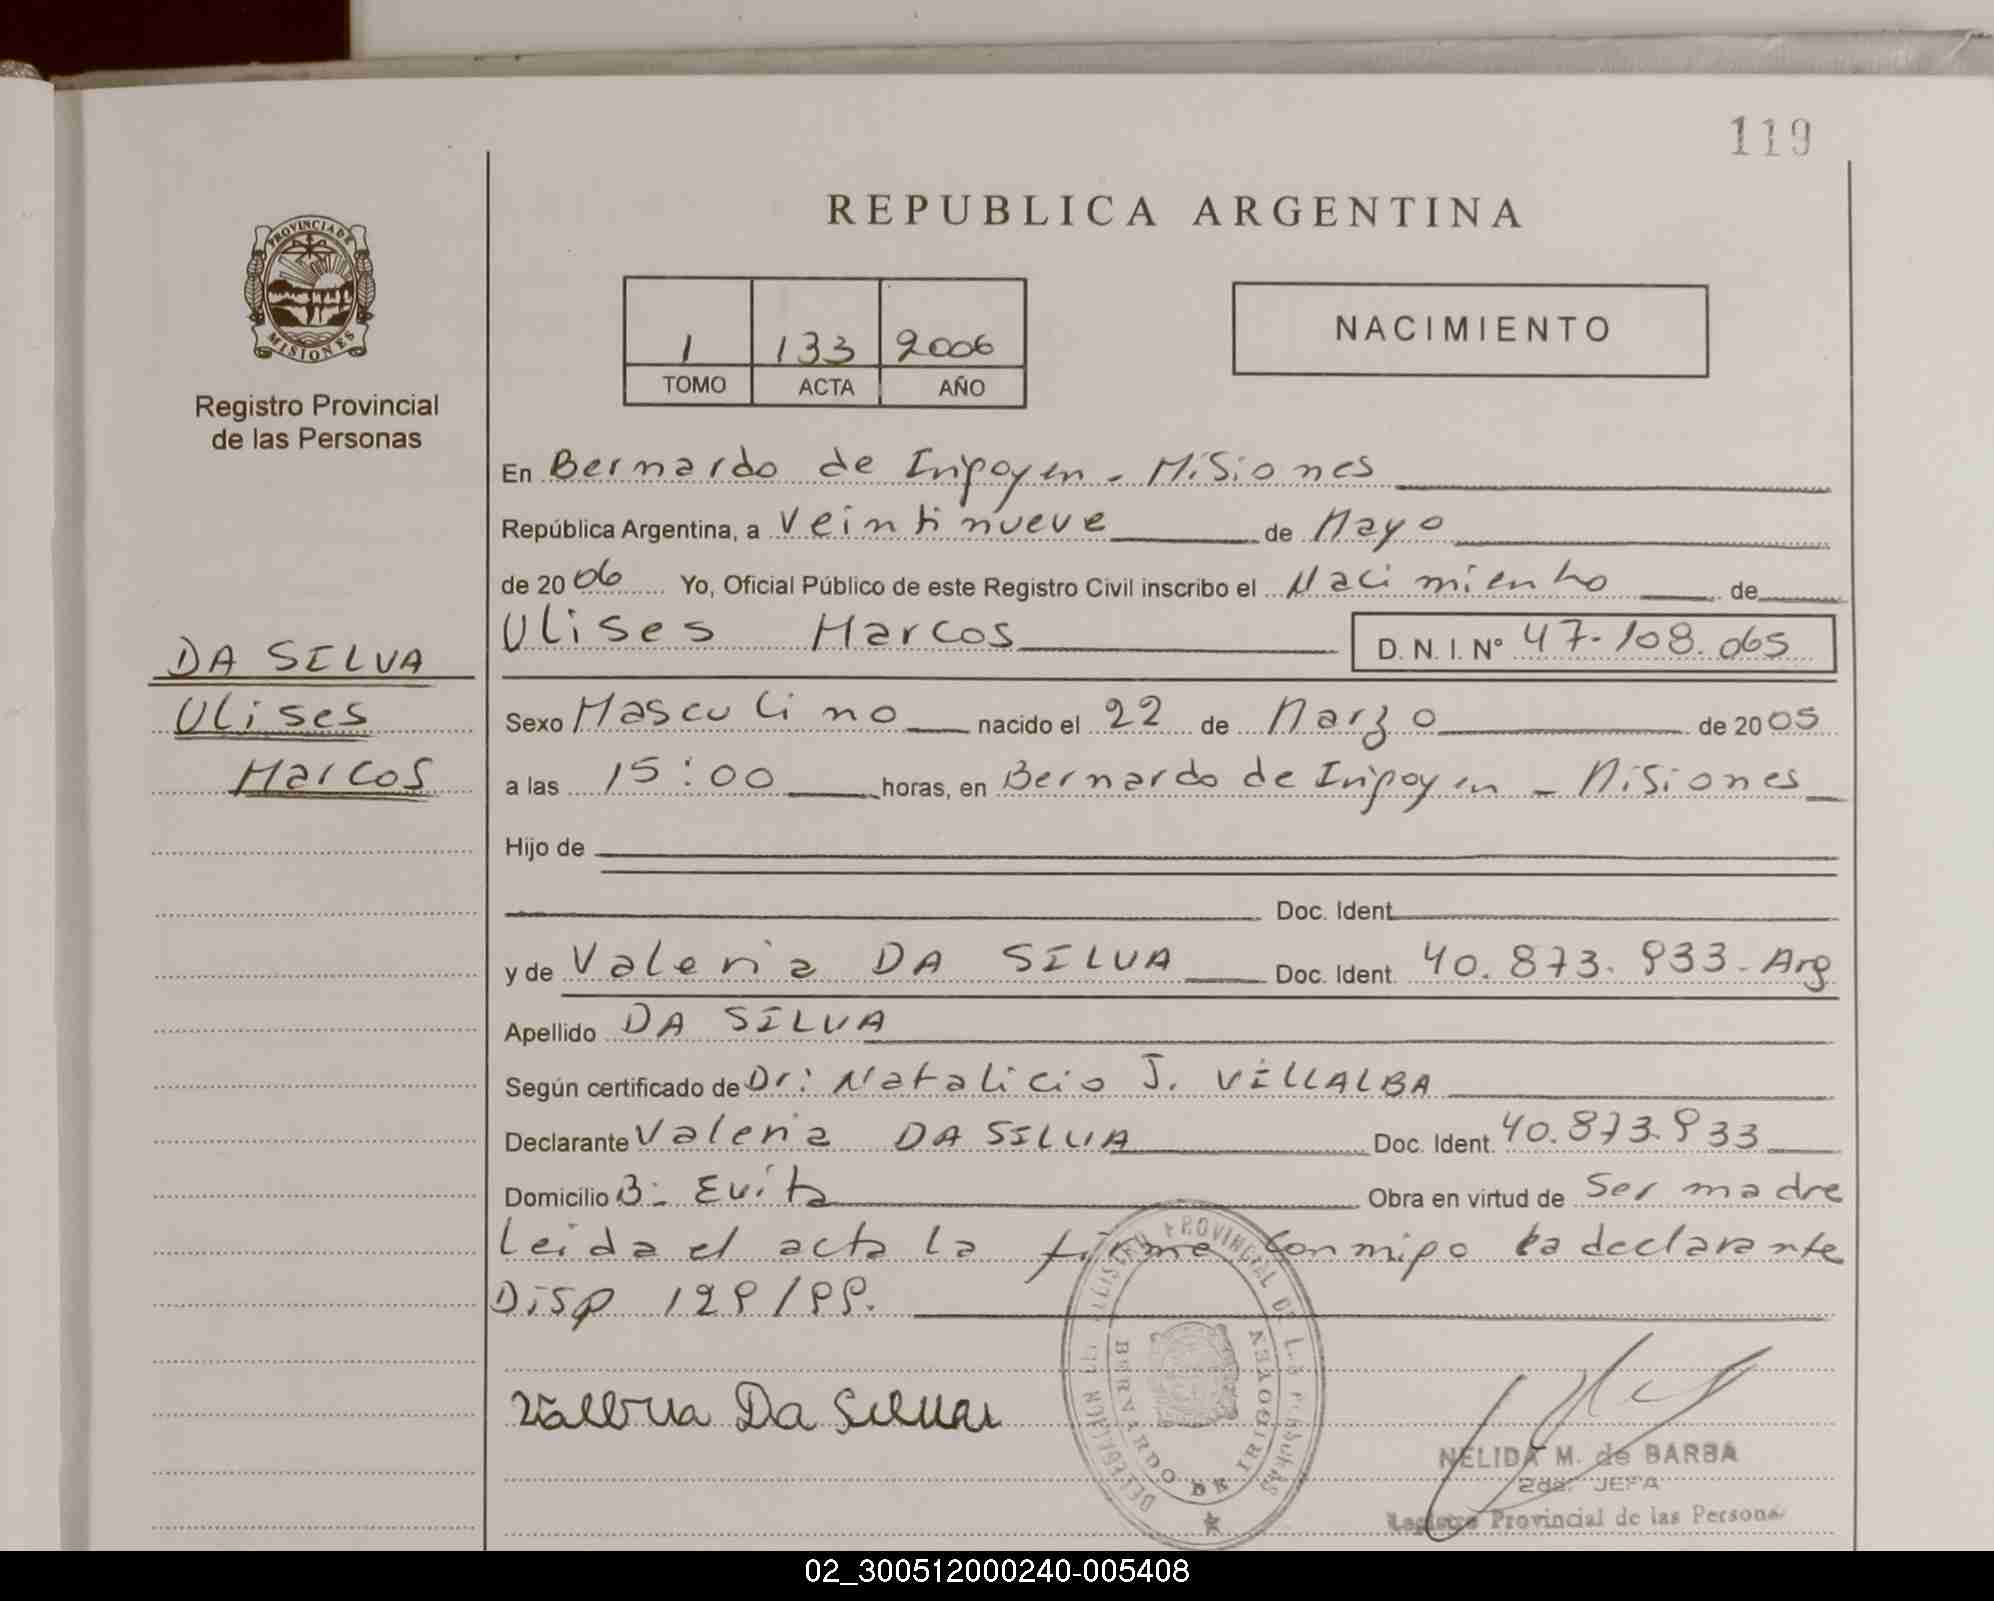 119
REPUBLICA ARGENTINA
PROVINCIA DE
MISIONES
Registro Provincial
de las Personas
1 133 2006
TOMO ACTA AÑO
NACIMIENTO
En Bernardo de Irigoyen - Misiones
República Argentina, a Veintinueve de Mayo
de 2006 Yo, Oficial Público de este Registro Civil inscribo el Nacimiento de
Ulises Marcos D. N. I. Nº 47.108.065
DA SILVA
Ulises
Marcos
Sexo Masculino nacido el 22 de Marzo de 2005
a las 15:00 horas, en Bernardo de Irigoyen - Misiones
Hijo de
Doc. Ident.
y de Valeria DA SILVA Doc. Ident. 40.873.933 - Arg
Apellido DA SILVA
Según certificado de Dr: Natalicio J. VILLALBA
Declarante Valeria DA SILVA Doc. Ident. 40.873.933
Domicilio B: Evita Obra en virtud de Ser madre
Leida el acta la firma conmigo la declarante
Disp 129/99.
Valeria Da Silva
PROVINCIAL DE LAS PERSONAS
BERNARDO DE IRIGOYEN
NELIDA M. de BARBA
2da. JEFA
Registro Provincial de las Persona
02_300512000240-005408